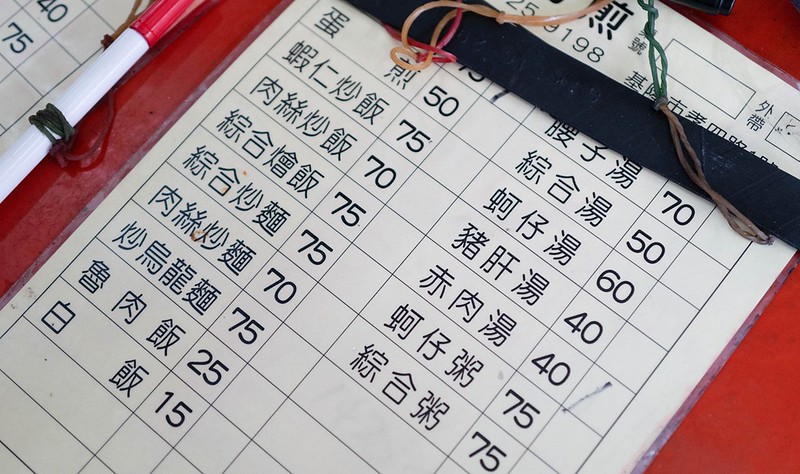 40
75
煎
25-9198
外帶
基隆市孝四路
蛋煎 50
蝦仁炒飯 75
肉絲炒飯 70
綜合燴飯 75
綜合炒麵 75
肉絲炒麵 70
炒烏龍麵 75
魯肉飯 25
白飯 15
腰子湯 70
綜合湯 50
蚵仔湯 60
豬肝湯 40
赤肉湯 40
蚵仔粥 75
綜合粥 75